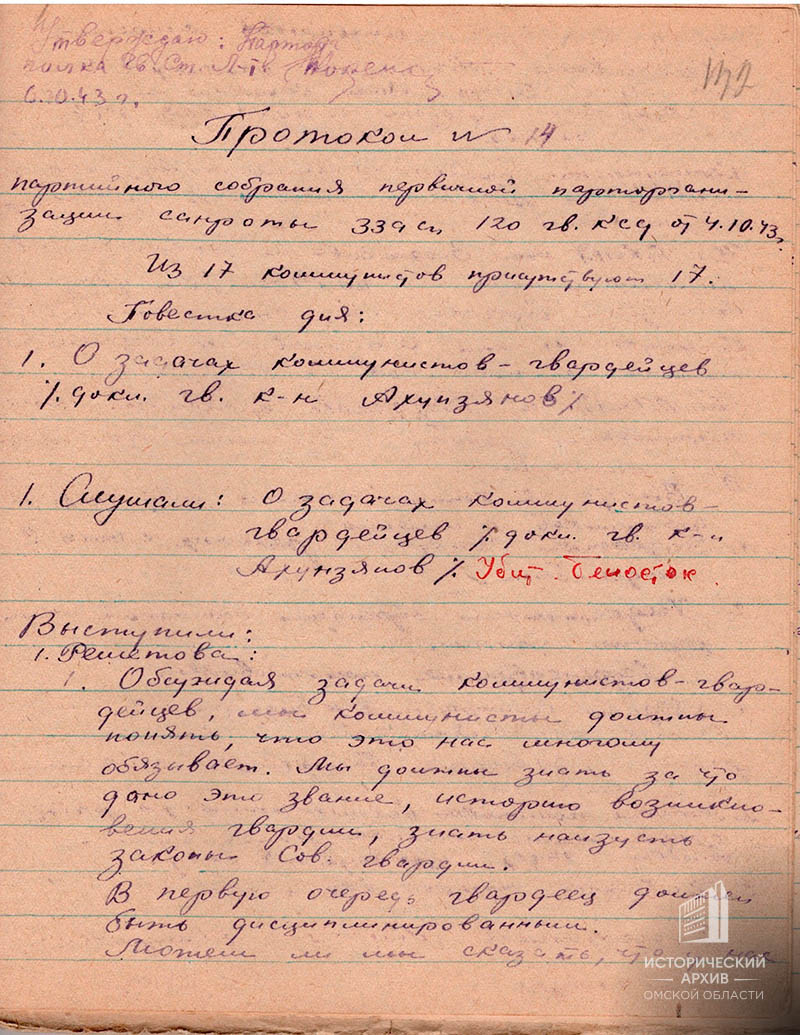 Утверждаю: Парторг
полка Гв. Ст. Л-т
6.10.43 г.
132
Протокол № 14
партийного собрания первичной парторгани-
зации санроты 334 сп 120 гв. ксд от 4.10.43г.
Из 17 коммунистов присутствуют 17.
Повестка дня:
1. О задачах коммунистов-гвардейцев
/. докл. гв. к-н Ахунзянов /.
1. Слушали: О задачах коммунистов-
гвардейцев /. докл. гв. к-н
Ахунзянов /. Убит. Белосток.
Выступили:
1. Решетова:
1. Обсуждая задачи коммунистов-гвар-
дейцев, мы коммунисты должны
понять, что это нас многому
обязывает. Мы должны знать за что
дано это звание, историю возникно-
вения гвардии, знать наизусть
законы Сов. гвардии.
В первую очередь гвардеец должен
быть дисциплинированным.
Можем ли мы сказать, что у нас
ИСТОРИЧЕСКИЙ
АРХИВ
ОМСКОЙ ОБЛАСТИ